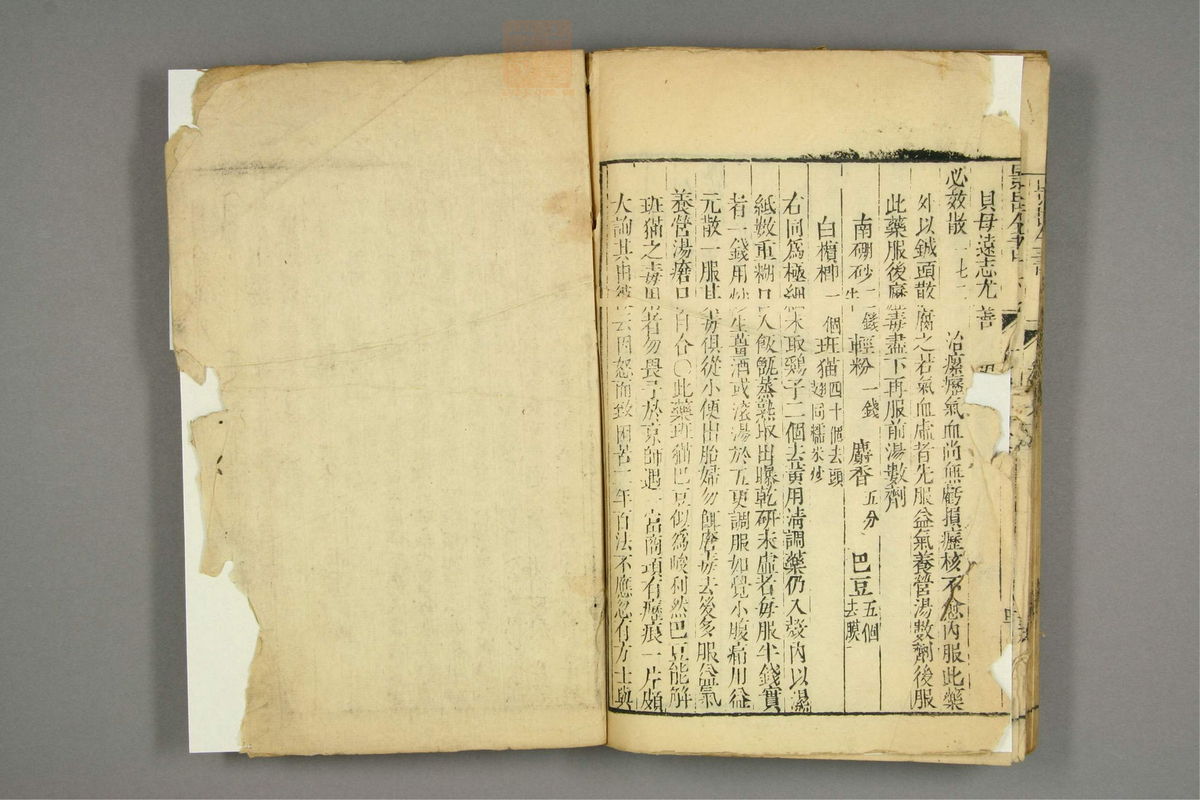 貝母遠志尤善
必效散 一七二 治瘰癧氣血尚無虧損癧核不愈內服此藥
外以鍼頭散腐之若氣血虛者先服益氣養營湯數劑後服
此藥服後癧毒盡下再服前湯數劑
南硼砂二錢 輕粉一錢 麝香五分 巴豆五個去膜
白檳榔一個 班猫四十個去頭翅同糯米炒
右同為極細末取鷄子二個去黃用清調藥仍入殼內以濕
紙數重糊口入飯甑蒸熟取出曝乾研末虛者每服半錢實
者一錢用炒生薑酒或滾湯於五更調服如覺小腹痛用益
元散一服其毒俱從小便出胎婦勿餌瘡毒去後多服益氣
養營湯瘡口自合○此藥班猫巴豆似為峻利然巴豆能解
班猫之毒用者勿畏予於京師遇一富商項有癧痕一片頗
大詢其由彼云因怒而致困苦二年百法不應忽有方士與